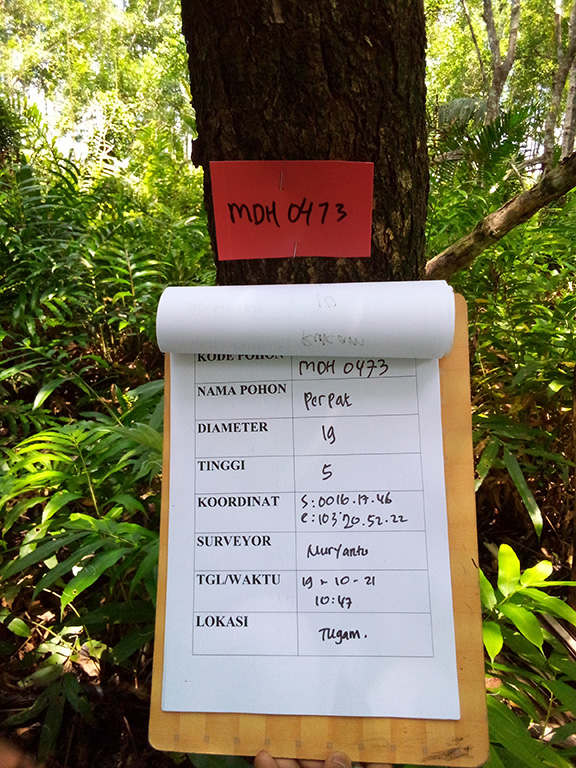 MDH 0473
KODE POHON MDH 0473
NAMA POHON Perpat
DIAMETER 19
TINGGI 5
KOORDINAT S:0016.17.46
e:103°20.52.22
SURVEYOR Nuryanto
TGL/WAKTU 19-10-21
10:47
LOKASI Tugam.